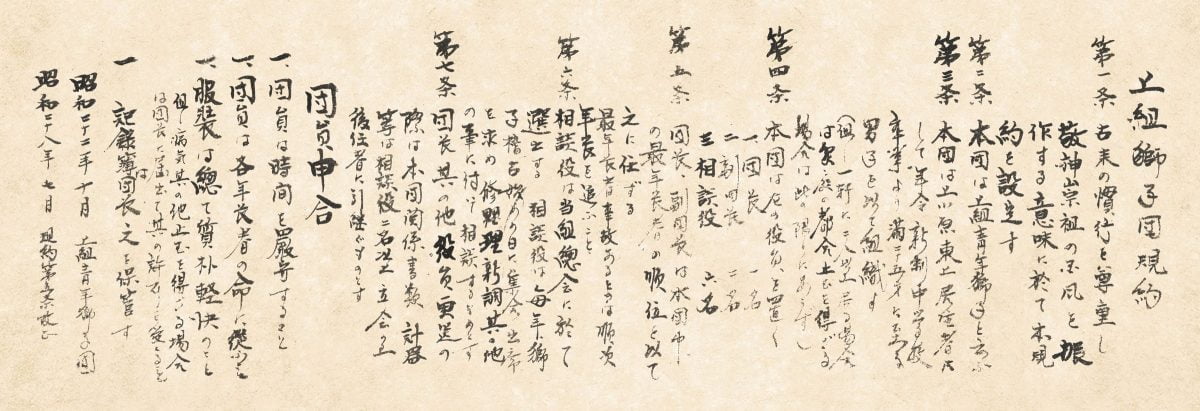 上組獅子団規約
第一条 古来の慣行を尊重し
敬神崇祖の風を振
作する意味に於て本規
約を設定す
第二条 本団は上組青年獅子と云ふ
第三条 本団は上小原東上居住者に
して年令 新制中学校
卒業より満二十五才に至る
男子を以て組織す
但し一軒に二人以上居る場合
は家庭の都合止むを得ざる
場合は此の限にあらず
第四条 本団に左の役員を置く
一、団長 一名
二、副団長 一名
三、相談役 六名
第五条 団長、副団長は本団中
の最年長者の順位を以て
之に任ずる
最年長者事故あるときは順次
年長を追ふこと
第六条 相談役は当組総会に於て
選出する 相談役は毎年獅
子稽古始めの日に集合 出席
を求め 修理新調其の他
の事に付け相談するものとす
第七条 団長其の他役員更迭の
際は本団関係書類 計器
等は相談役二名以上立会の上
後任者に引継ぐものとす
団員申合
一、団員は時間を厳守すること
一、団員は各年長者の命に従ふこと
一、服装は總て質朴軽快のこと
但し病気其の他止むを得ざる場合
は団長に届出て其の許可を受くること
一 記録簿は団長之を保管す
昭和二十二年十月 上組青年獅子団
昭和二十八年七月 規約第五条改正